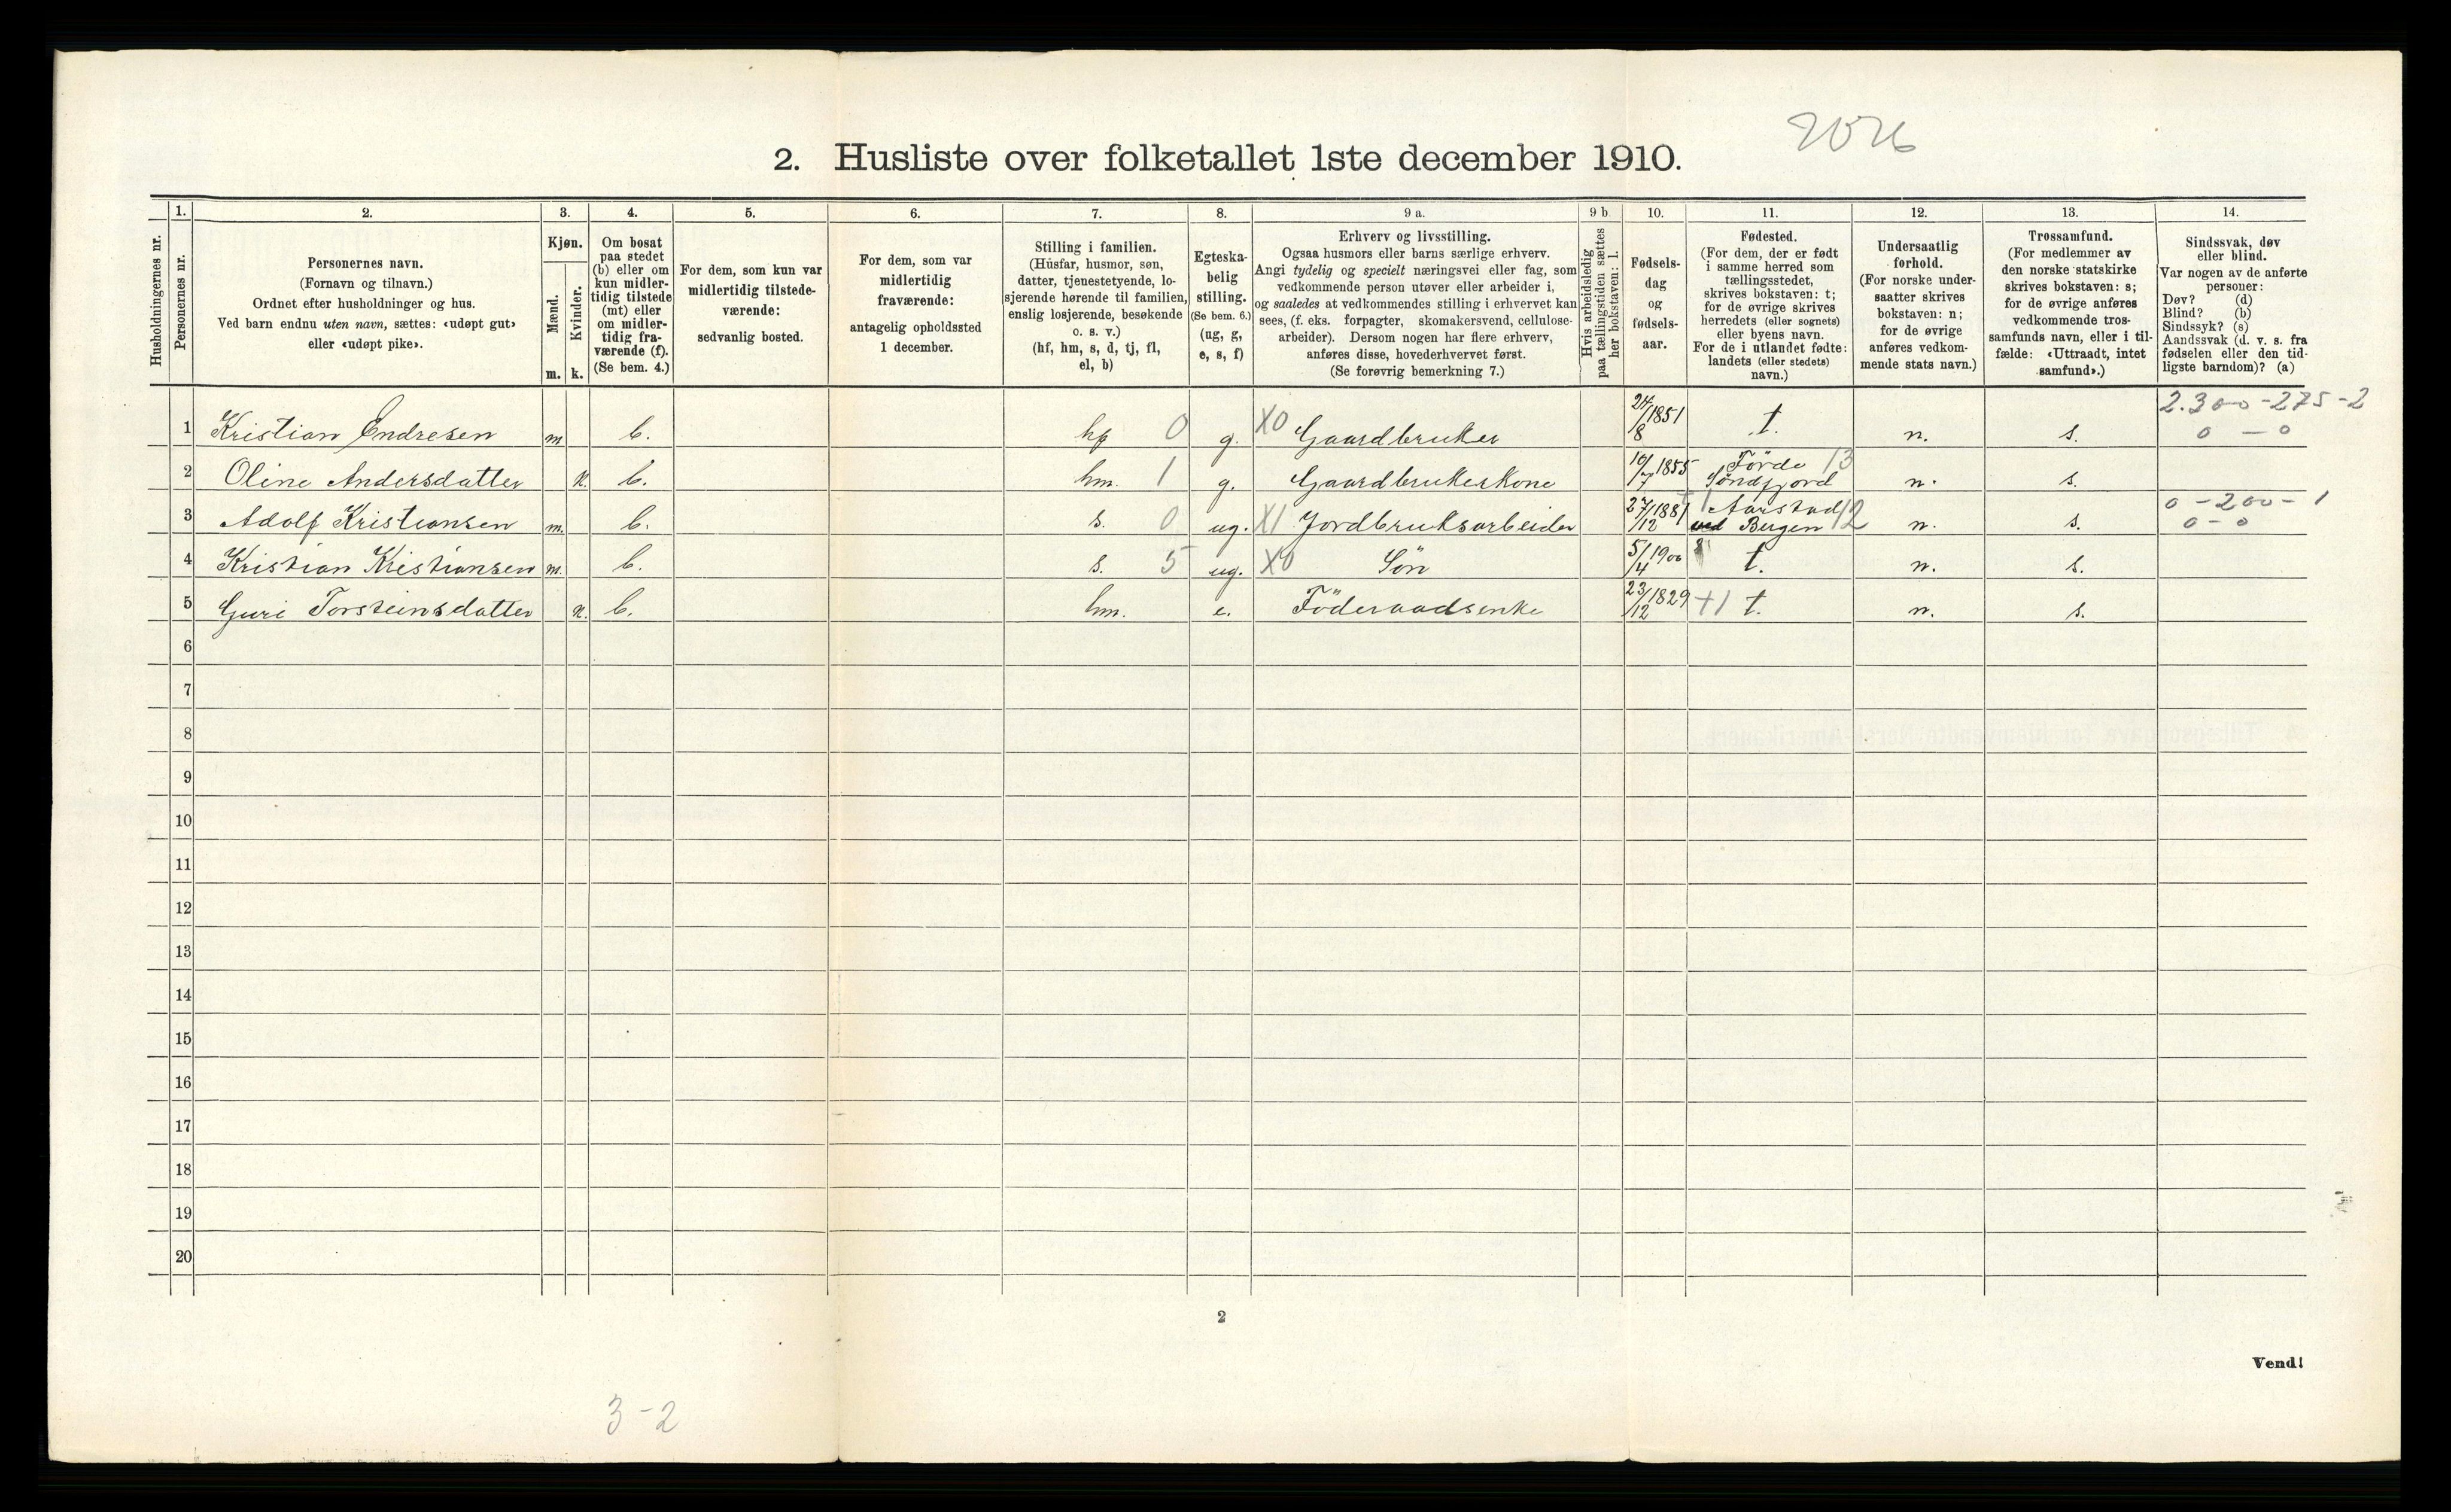 2026
2. Husliste over folketallet 1ste december 1910.
Husholdningernes nr.
1. Personernes nr.
2. Personernes navn.
(Fornavn og tilnavn.)
Ordnet efter husholdninger og hus.
Ved barn endnu uten navn, sættes: «udøpt gut»
eller «udøpt pike».
3. Kjøn.
Mænd. Kvinder.
m. k.
4. Om bosat
paa stedet
(b) eller om
kun midler-
tidig tilstede
(mt) eller
om midler-
tidig fra-
værende (f).
(Se bem. 4.)
5. For dem, som kun var
midlertidig tilstede-
værende:
sedvanlig bosted.
6. For dem, som var
midlertidig
fraværende:
antagelig opholdssted
1 december.
7. Stilling i familien.
(Husfar, husmor, søn,
datter, tjenestetyende, lo-
sjerende hørende til familien,
enslig losjerende, besøkende
o. s. v.)
(hf, hm, s, d, tj, fl,
el, b)
8. Egteska-
belig
stilling.
(Se bem. 6.)
(ug, g,
e, s, f)
9 a. Erhverv og livsstilling.
Ogsaa husmors eller barns særlige erhverv.
Angi tydelig og specielt næringsvei eller fag, som
vedkommende person utøver eller arbeider i,
og saaledes at vedkommendes stilling i erhvervet kan
sees, (f. eks. forpagter, skomakersvend, cellulose-
arbeider). Dersom nogen har flere erhverv,
anføres disse, hovederhvervet først.
(Se forøvrig bemerkning 7.)
9 b. Hvis arbeidsledig
paa tællingstiden sættes
her bokstaven: l.
10. Fødsels-
dag
og
fødsels-
aar.
11. Fødested.
(For dem, der er født
i samme herred som
tællingsstedet,
skrives bokstaven: t;
for de øvrige skrives
herredets (eller sognets)
eller byens navn.
For de i utlandet fødte:
landets (eller stedets)
navn.)
12. Undersaatlig
forhold.
(For norske under-
saatter skrives
bokstaven: n;
for de øvrige
anføres vedkom-
mende stats navn.)
13. Trossamfund.
(For medlemmer av
den norske statskirke
skrives bokstaven: s;
for de øvrige anføres
vedkommende tros-
samfunds navn, eller i til-
fælde: «Uttraadt, intet
samfund».)
14. Sindssvak, døv
eller blind.
Var nogen av de anførte
personer:
Døv? (d)
Blind? (b)
Sindssyk? (s)
Aandssvak (d. v. s. fra
fødselen eller den tid-
ligste barndom)? (a)
1 Kristian Endresen m b. hf 0 g. X0 Gaardbruker 24/8 1851 t. n. s. 2.300-275-2
0 - 0
2 Oline Andersdatter k. b. hm. 1 g. Gaardbrukerkone 10/7 1855 Förde 13
Söndfjord n. s.
3 Adolf Kristiansen m. b. s. 0 ug. X1 Jordbruksarbeider 27/12 1881 Aarstad 12
ved Bergen n. s. 0-200-1
0-0
4 Kristian Kristiansen m. b. s. 5 ug. X0 Sön 5/4 1900 t. n. s.
5 Guri Torsteinsdatter k. b. hm. e. Föderaadsenke 23/12 1829 +1 t. n. s.
6
7
8
9
10
11
12
13
14
15
16
17
18
19
20
2
Vend!
3-2